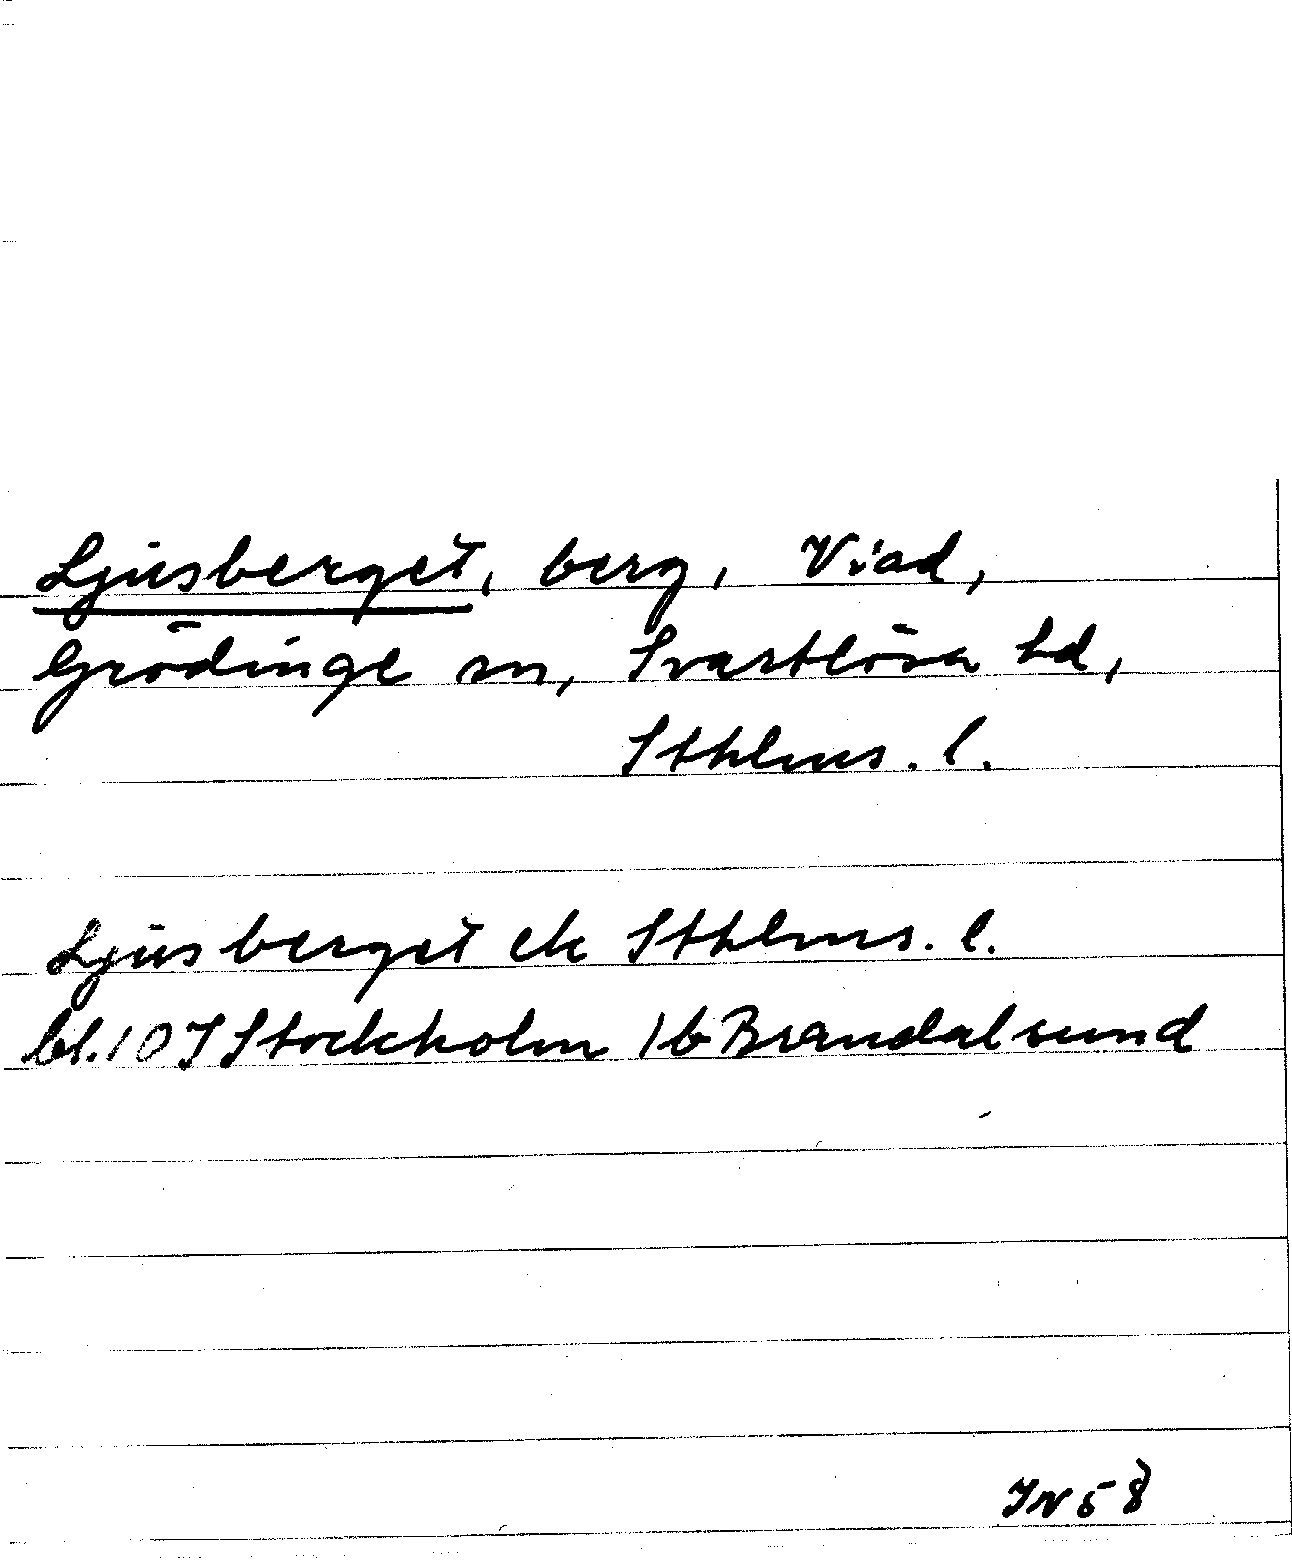 Ljusberget, berg, Viad,
Grödinge sn, Svartlösa hd,
Sthlms. l.
Ljusberget ek Sthlms. l.
bl. 10 I Stockholm 1b Brandalsund